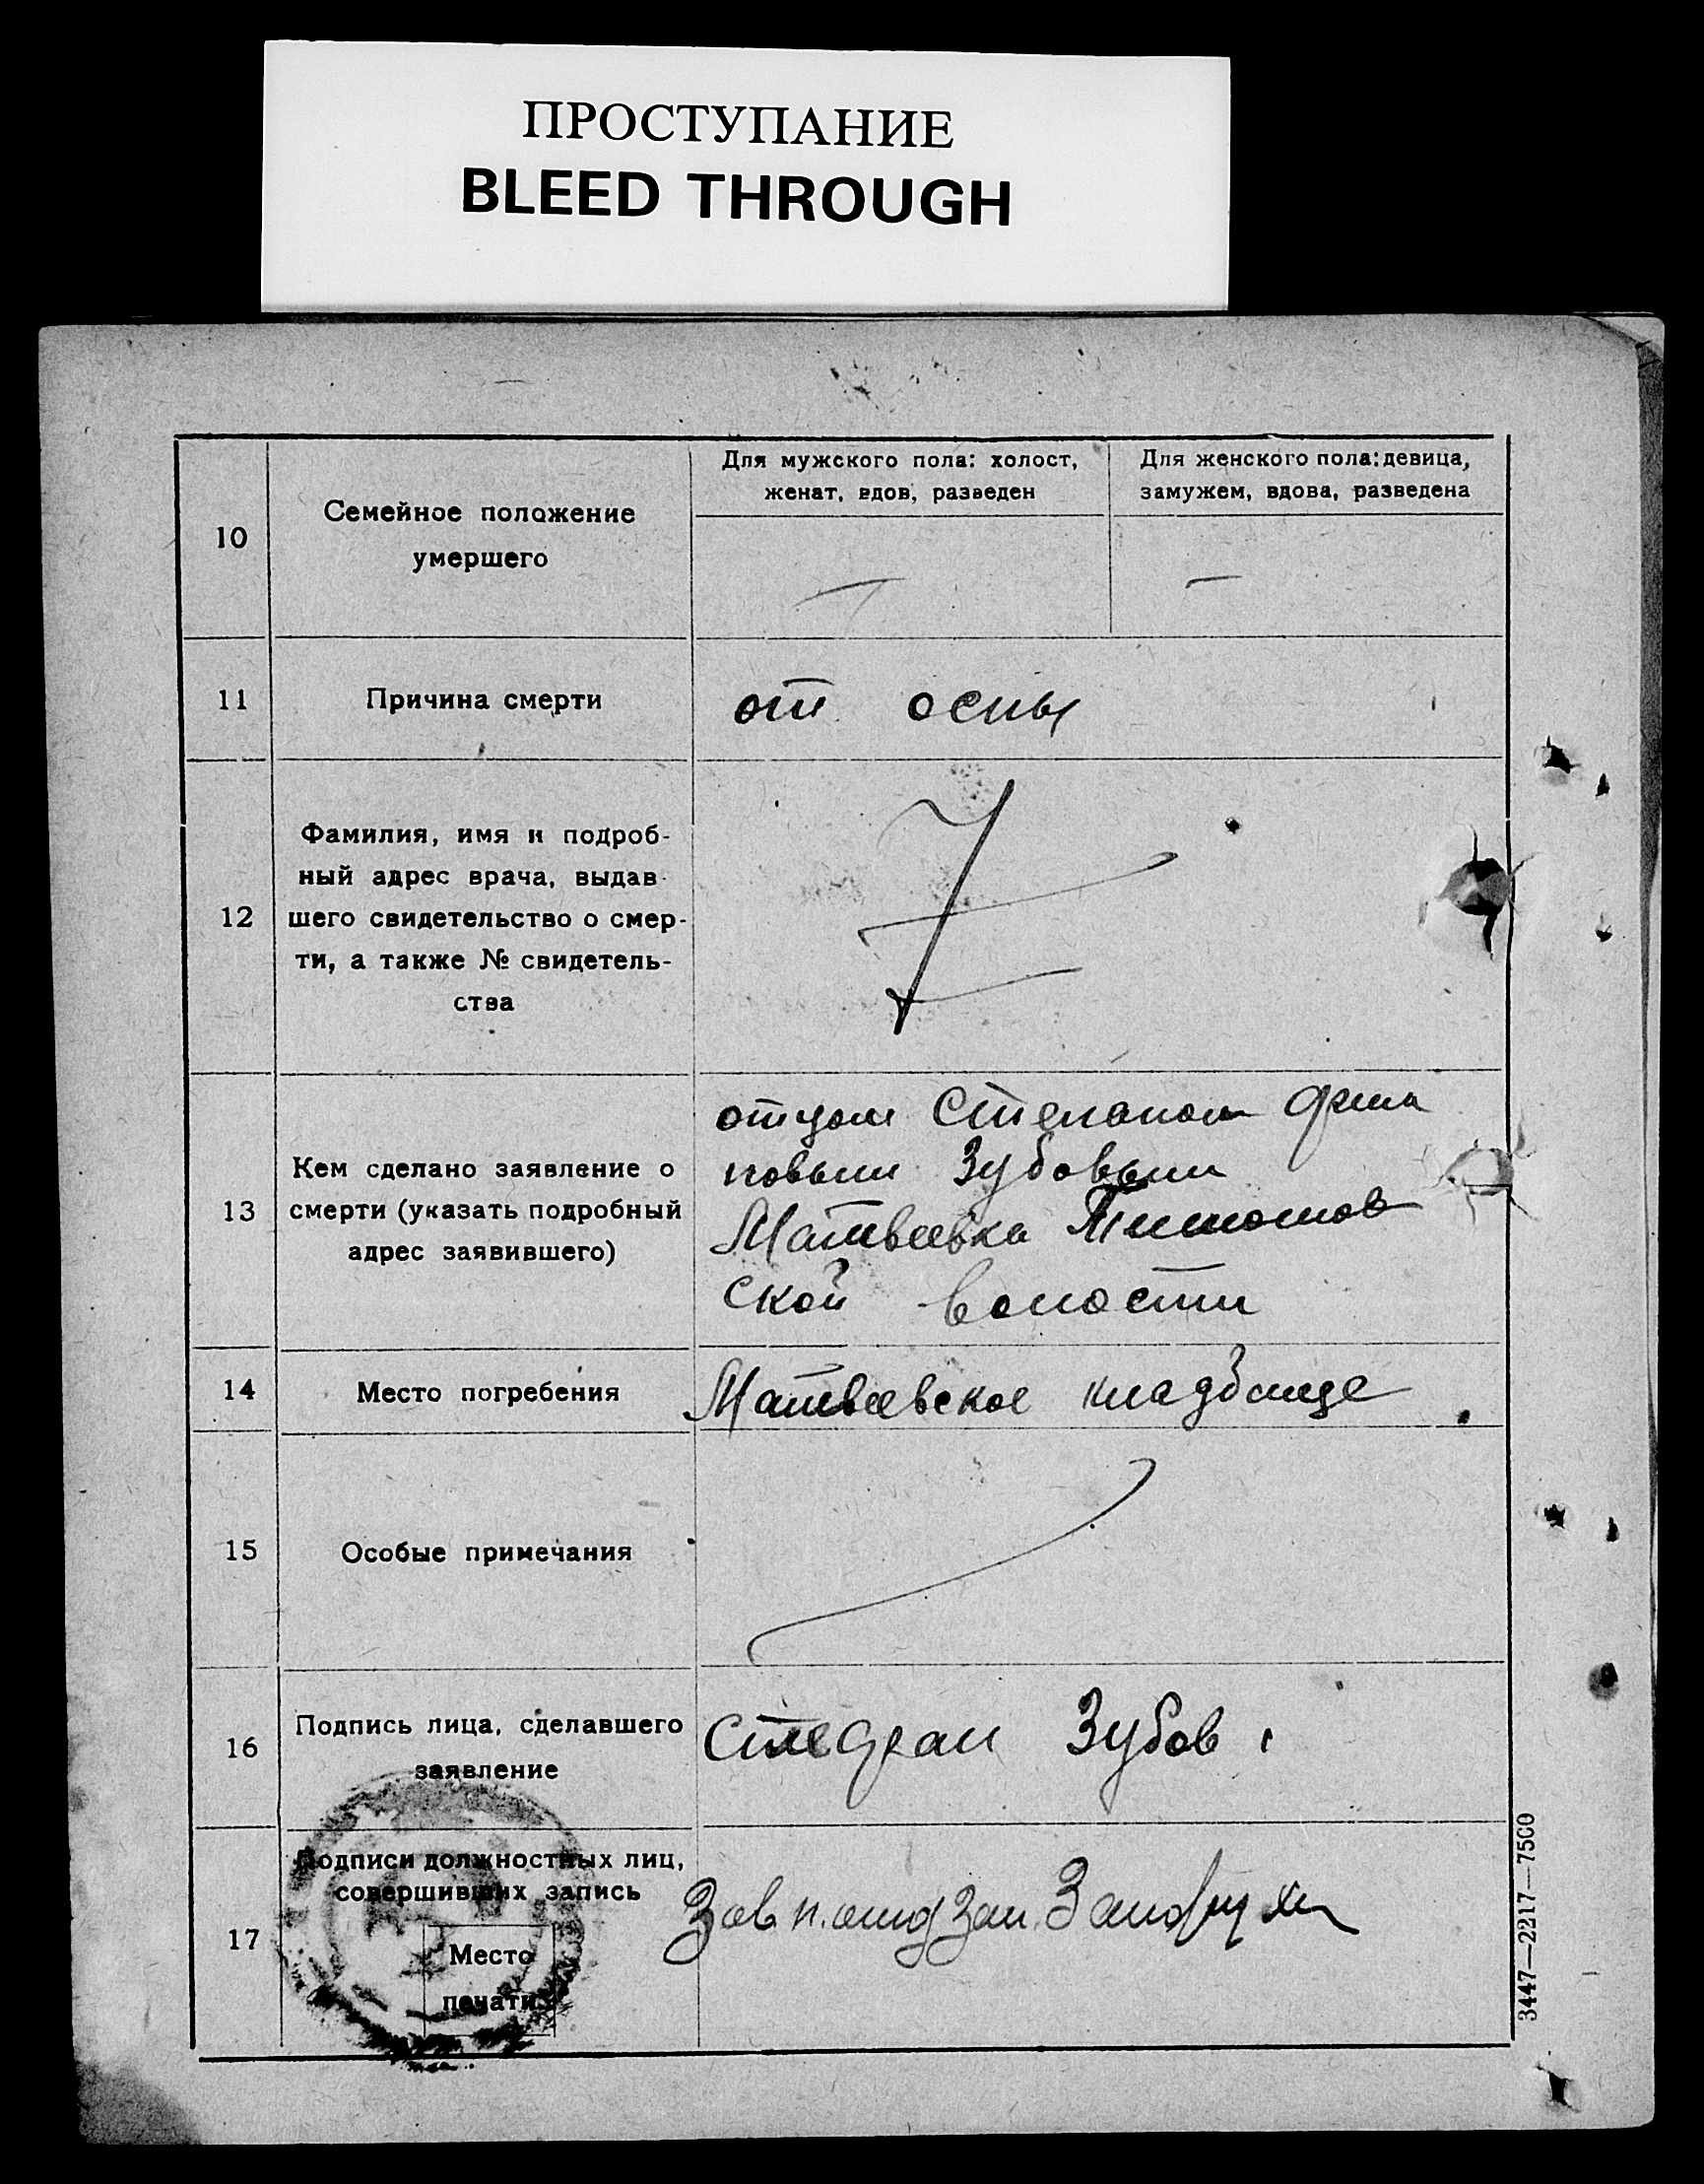 ПРОСТУПАНИЕ
BLEED THROUGH
10
Семейное положение
умершего
Для мужского пола: холост,
женат, вдов, разведен
Для женского пола: девица,
замужем, вдова, разведена
—
—
11
Причина смерти
от оспы
12
Фамилия, имя и подроб-
ный адрес врача, выдав-
шего свидетельство о смер-
ти, а также № свидетель-
ства
13
Кем сделано заявление о
смерти (указать подробный
адрес заявившего)
отцом Степаном
повым Зубовым
Матвеевка
ской волости
14
Место погребения
Матвеевское кладбище
15
Особые примечания
16
Подпись лица, сделавшего
заявление
Степан Зубов
17
Подписи должностных лиц,
совершивших запись
Место
печати
Зав п. отд зап.
3447—2217—7500